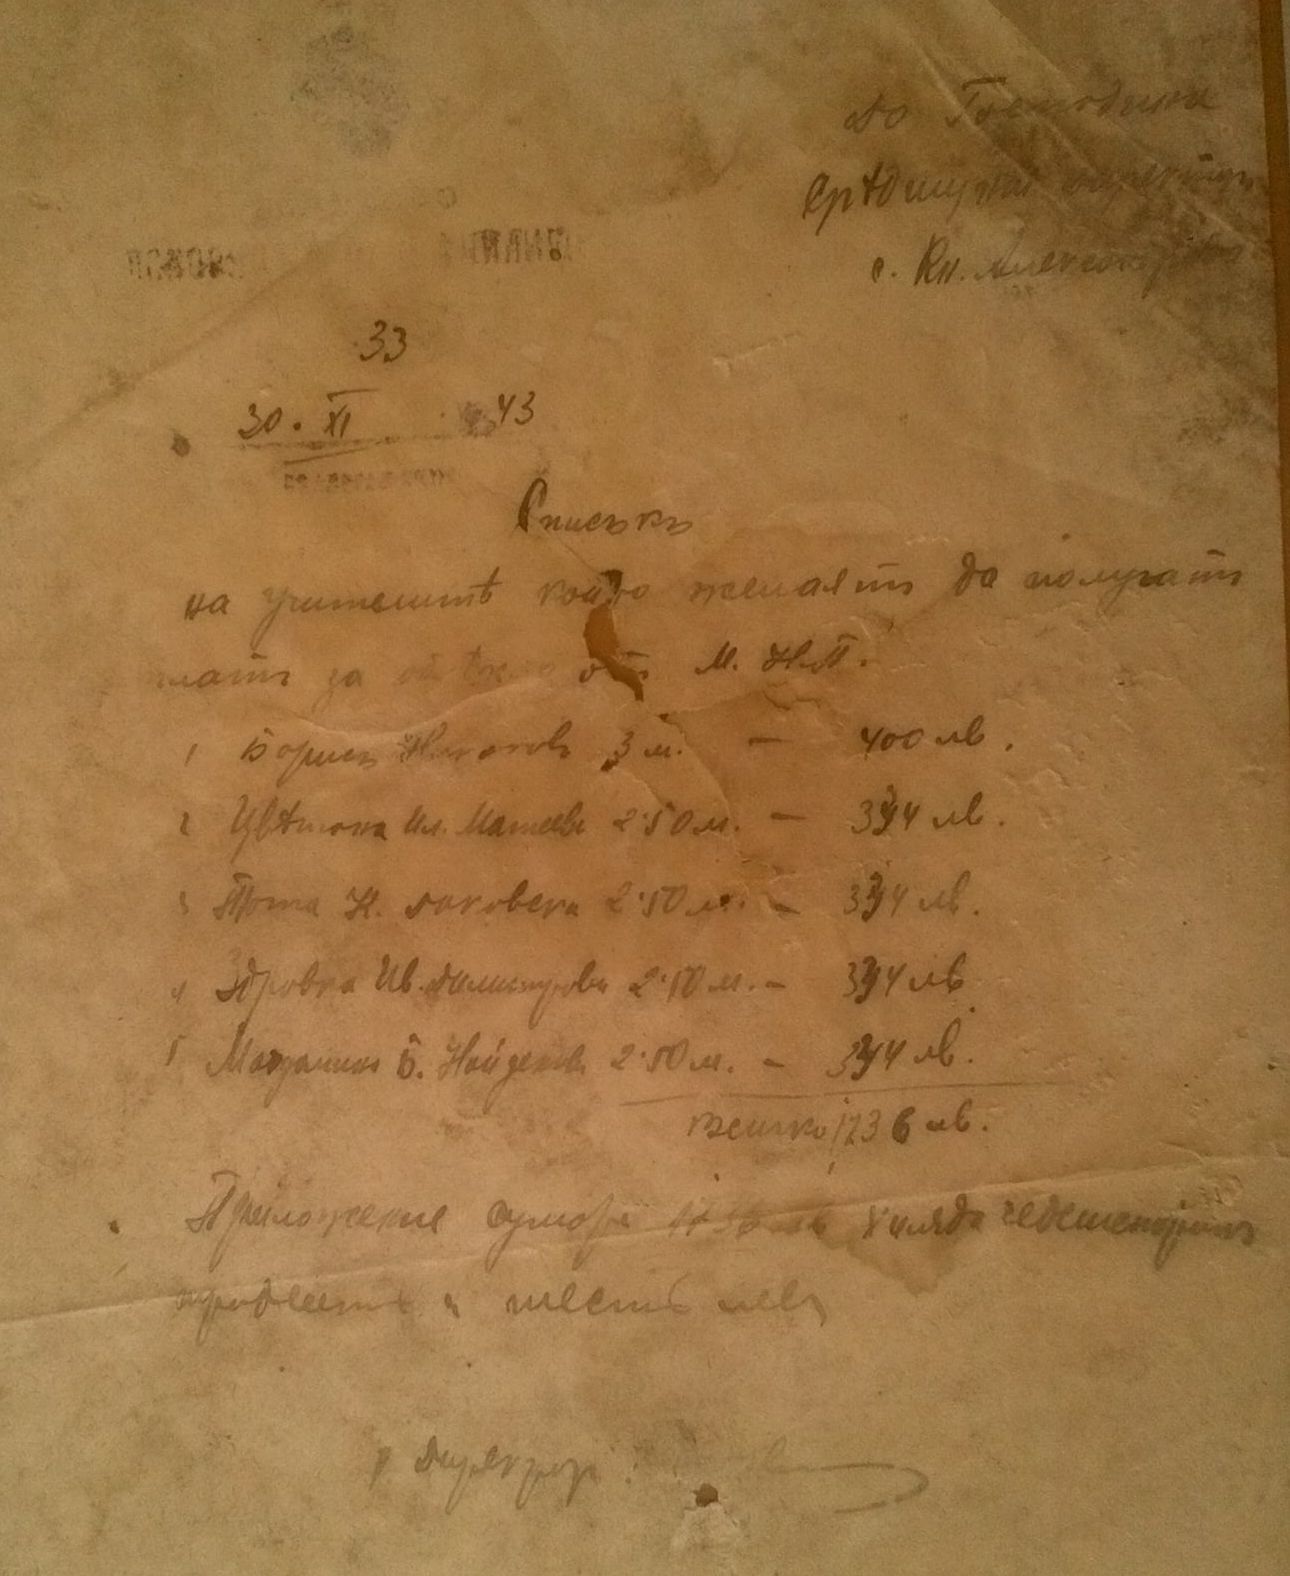 до Господина
Срѣдищния директоръ
с. Кн. Александрово
33
30. XI 43
Списъкъ
на учителитѣ които желаятъ да получатъ
платъ за от М. Н.П.
1 Борисъ 3 м. — 400 лв.
2 Цвѣтана Ил. Матеева 2·50 м. — 334 лв.
3 Тота Н. Раковска 2·50 м. — 334 лв.
4 Здравка Ив. Димитрова 2·50 м. — 334 лв
5 Магдалина Б. Найденова 2·50 м. — 334 лв.
всичко 1736 лв.
Приложение сумата 1736 лв хиляда седемстотинъ
тридесетъ и шесть лева
Директоръ: